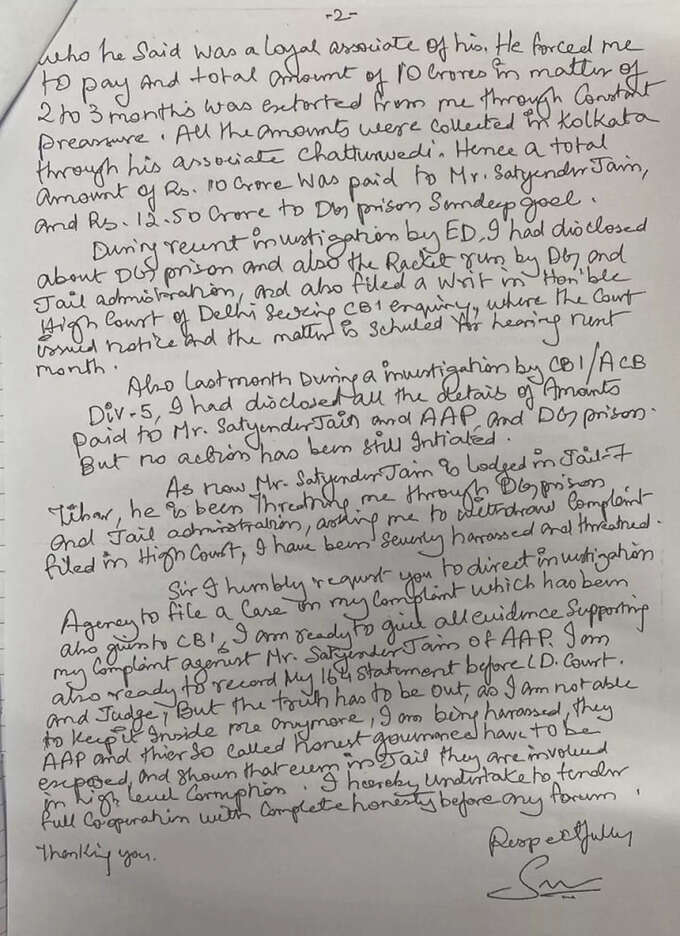 -2-
who he said was a loyal associate of his. He forced me
to pay and total amount of 10 Crores in matter of
2 to 3 months was extorted from me through Constant
preassure. All the amounts were collected in Kolkata
through his associate Chatturwedi. Hence a total
amount of Rs. 10 Crore was paid to Mr. Satyender Jain,
and Rs. 12.50 Crore to DG prison Sandeep goel.
During recent investigation by ED, I had disclosed
about DG prison and also the Racket run by DG and
Jail admistration, and also filed a writ in Hon'ble
High Court of Delhi seeking CBI enquiry, where the Court
issued notice and the matter is schuled for hearing next
month.
Also last month During a investigation by CBI/ACB
Div-5, I had disclosed all the details of Amonts
paid to Mr. Satyender Jain and AAP, and DG prison.
But no action has been still Intiated.
As now Mr. Satyender Jain is lodged in Jail-7
Tihar, he is been Threatning me through DG prison
and Jail admistration, asking me to withdraw Complaint
filed in High Court, I have been severly harassed and threatned.
Sir I humbly request you to direct investigation
Agency to file a Case on my Complaint which has been
also given to CBI, I am ready to give all evidence supporting
my Complaint agenist Mr. Satyender Jain of AAP. I am
also ready to record My 164 statement before LD. Court.
and Judge, But the truth has to be out, as I am not able
to keep it Inside me anymore, I am being harassed, they
AAP and thier so called honest governance have to be
exposed, and shown that even in Jail they are involved
in high level Corruption. I hereby undertake to tender
full Cooperation with Complete honesty before any forum.
Respectfully
Thanking you.